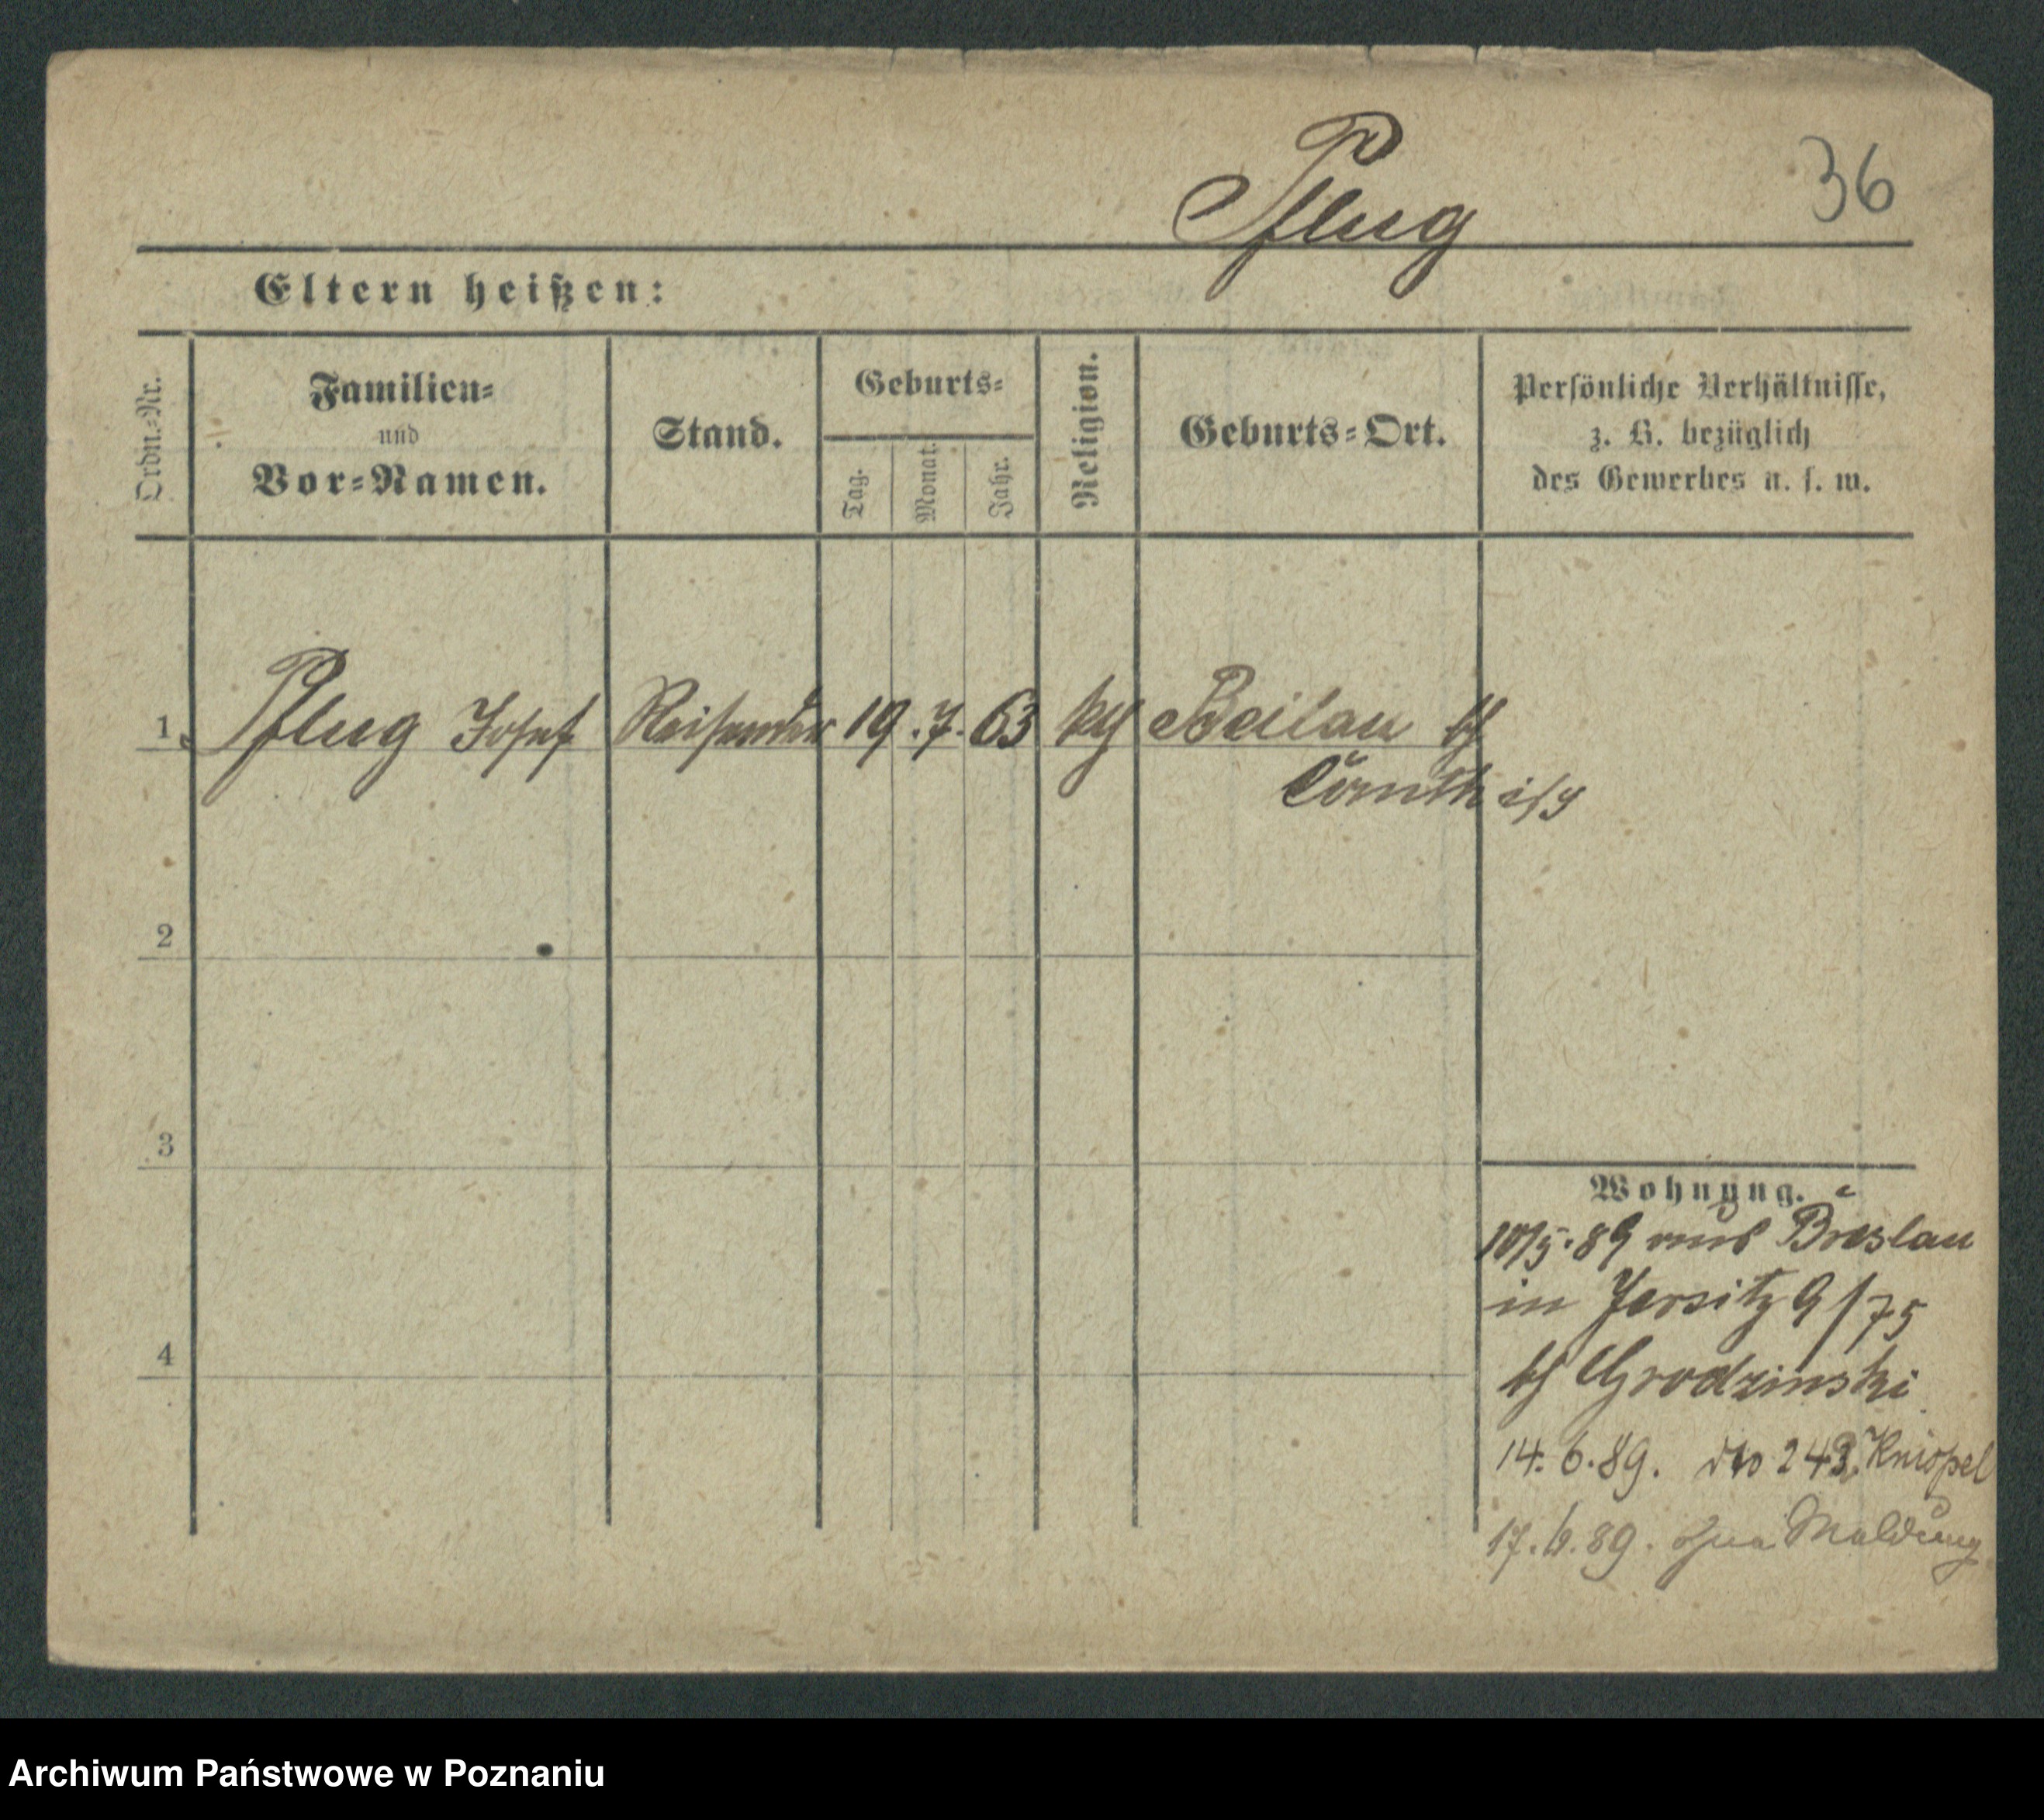 Pflug
36
Eltern heißen:
Ordn.-Nr.
Familien-
und
Vor-Namen.
Stand.
Geburts-
Tag.
Monat.
Jahr.
Religion.
Geburts-Ort.
Persönliche Verhältnisse,
z. B. bezüglich
des Gewerbes u. s. w.
1 Pflug Josef Reisender 19. 7. 63 Beilau
2
3
4
Wohnung.
10/5.89 aus Breslau
in Jersitz 9/75
Grodzinski
14. 6. 89. dto
17. 6. 89. Meldung
Archiwum Państwowe w Poznaniu